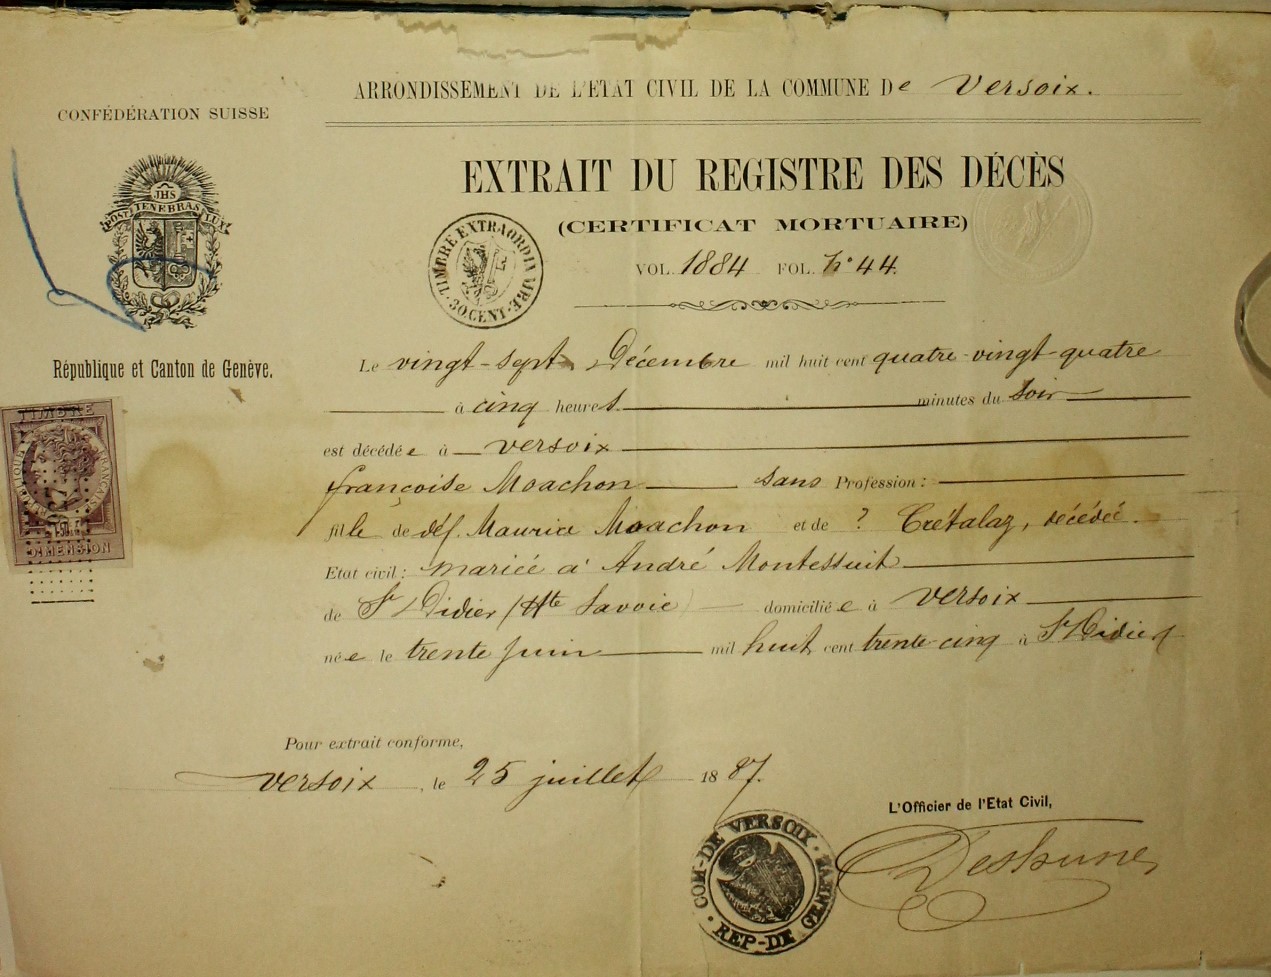 ARRONDISSEMENT DE L'ETAT CIVIL DE LA COMMUNE De Versoix.
CONFÉDÉRATION SUISSE
JHS
POST TENEBRAS LUX
République et Canton de Genève.
EXTRAIT DU REGISTRE DES DÉCÈS
(CERTIFICAT MORTUAIRE)
TIMBRE EXTRAORDINAIRE
30. CENT.
VOL. 1884 FOL. No 44.
Le vingt-sept Décembre mil huit cent quatre-vingt-quatre
à cinq heures minutes du soir
est décédée à Versoix
françoise Moachon sans Profession:
fille de déf. Maurice Moachon et de ? Crétalaz, décédée.
Etat civil: mariée à André Montessuit
de St Didier (Hte Savoie) domiciliée à Versoix
née le trente Juin mil huit cent trente-cinq à St Didier
TIMBRE
DIMENSION
Pour extrait conforme,
Versoix, le 25 juillet 1887.
L'Officier de l'Etat Civil,
COM-DE VERSOIX.
REP-DE GENEVE